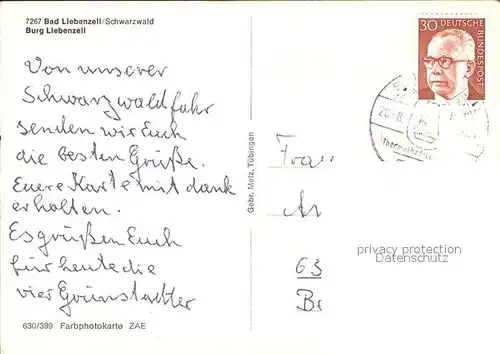 7267 Bad Liebenzell/Schwarzwald
Burg Liebenzell
Von unserer
Schwarzwaldfahr
senden wir Euch
die besten Grüße.
Euere Karte mit dank
erholten.
Es grüßen Euch
für heute die
vier Grünstadter
630/399 Farbphotokarte ZAE
Gebr. Metz, Tübingen
30 DEUTSCHE
BUNDESPOST
20.-8.
Thermalbad
Frau
63
privacy protection
Datenschutz